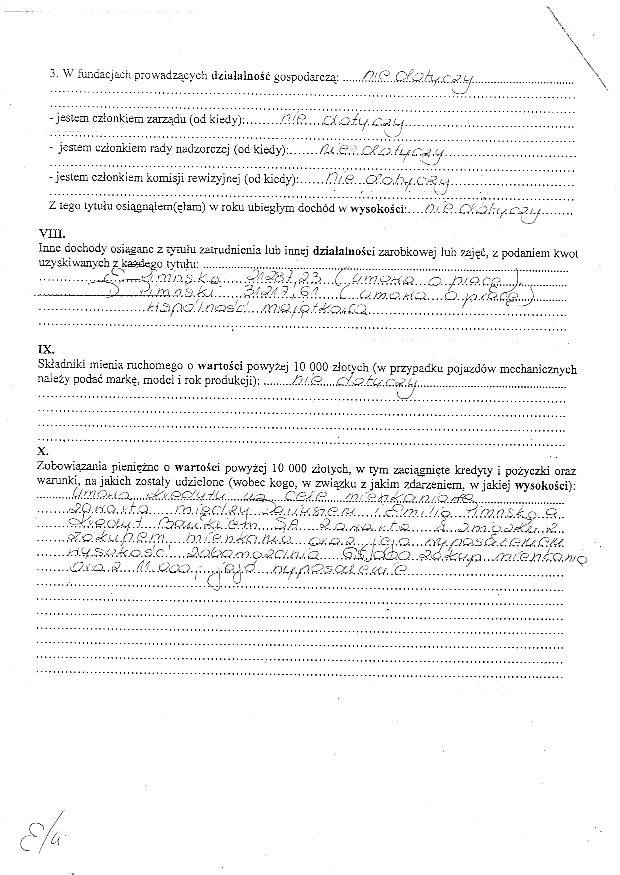 3. W fundacjach prowadzących działalność gospodarczą: nie dotyczy
- jestem członkiem zarządu (od kiedy): nie dotyczy
- jestem członkiem rady nadzorczej (od kiedy): nie dotyczy
- jestem członkiem komisji rewizyjnej (od kiedy): nie dotyczy
Z tego tytułu osiągnąłem(ęłam) w roku ubiegłym dochód w wysokości: nie dotyczy
VIII.
Inne dochody osiągane z tytułu zatrudnienia lub innej działalności zarobkowej lub zajęć, z podaniem kwot
uzyskiwanych z każdego tytułu:
(umowa o pracę)
31217,61 (umowa o pracę)
wspólność majątkowa
IX.
Składniki mienia ruchomego o wartości powyżej 10 000 złotych (w przypadku pojazdów mechanicznych
należy podać markę, model i rok produkcji): nie dotyczy
X.
Zobowiązania pieniężne o wartości powyżej 10 000 złotych, w tym zaciągnięte kredyty i pożyczki oraz
warunki, na jakich zostały udzielone (wobec kogo, w związku z jakim zdarzeniem, w jakiej wysokości):
umowa kredytu na cele mieszkaniowe
zawarta między Januszem i Emilią a
Bankiem SA zawarta w związku z
zakupem mieszkania oraz jego wyposażeniem
wysokość zobowiązania 65.000 zakup mieszkania
oraz 11.000,- jego wyposażenie